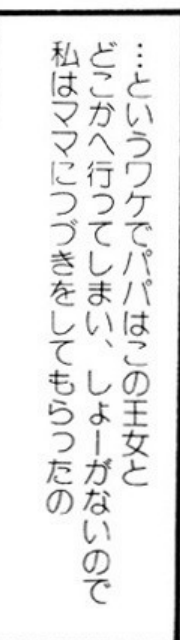 …というワケでパパはこの王女と
どこかへ行ってしまい、しょーがないので
私はママにつづきをしてもらったの